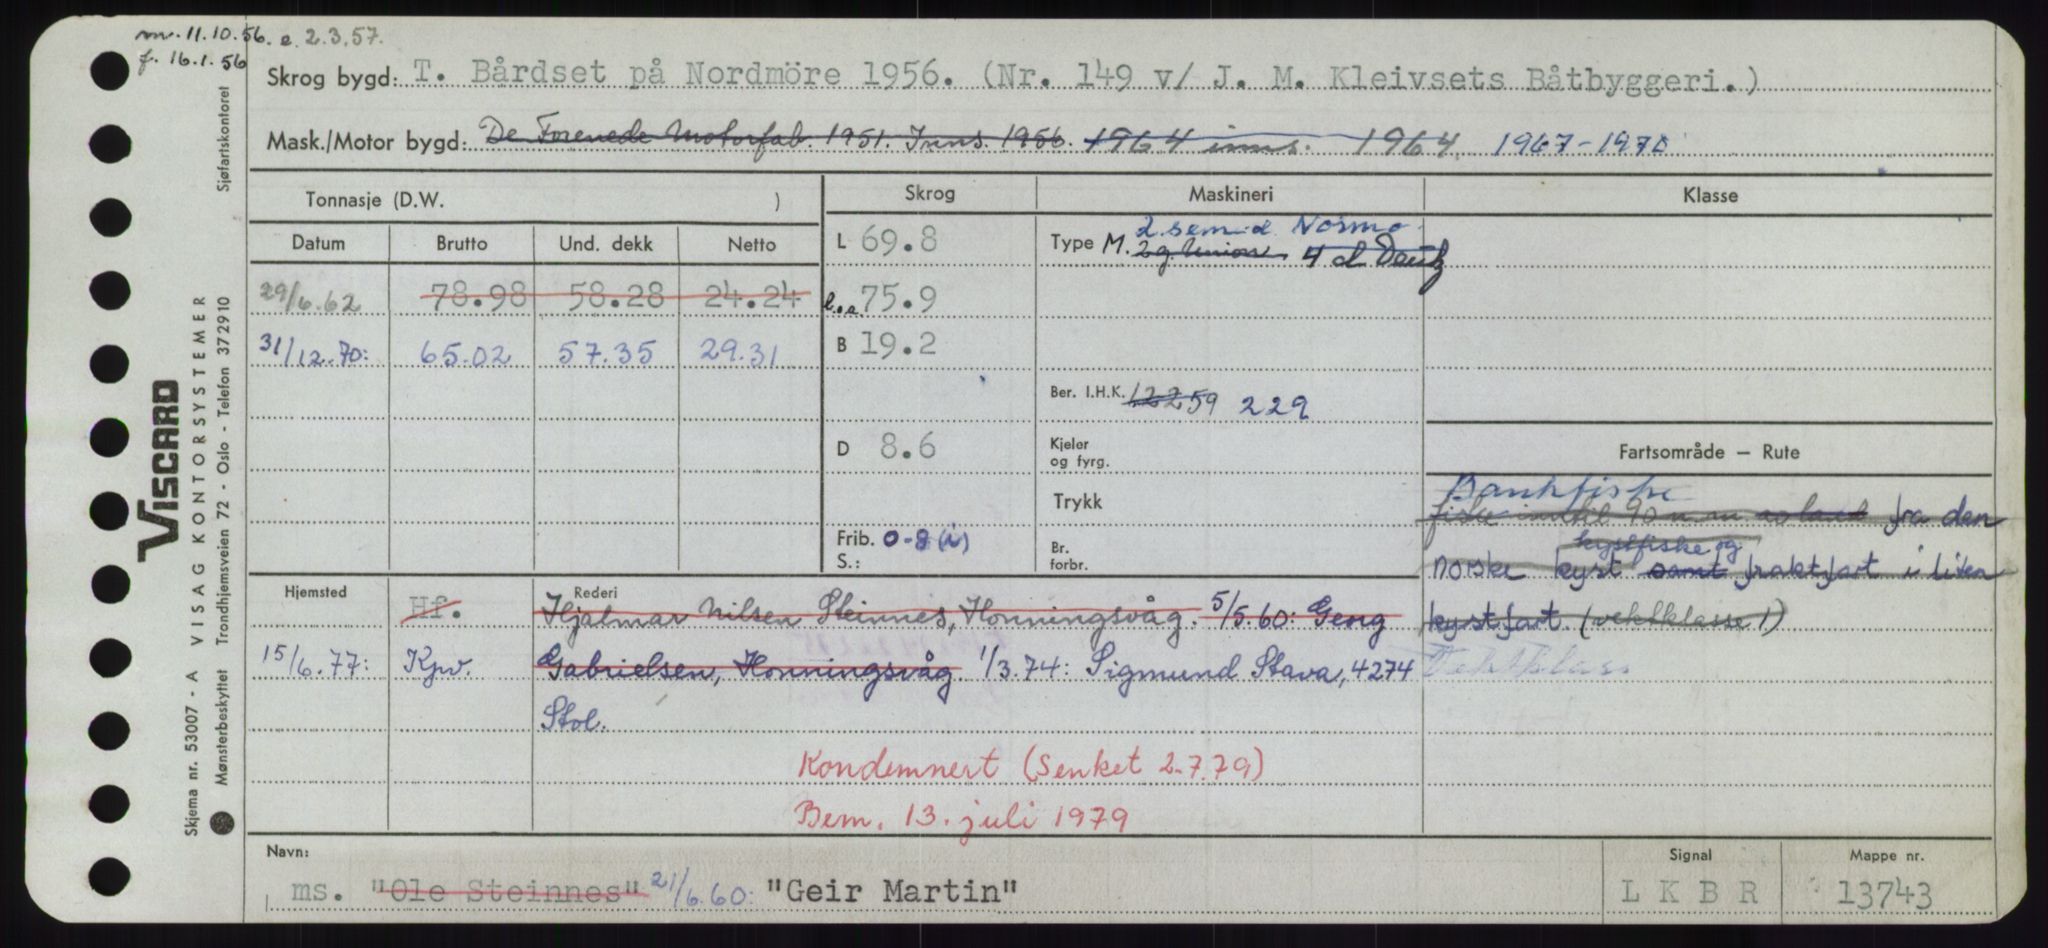 m. 11.10.56. e. 2.3.57.
f. 16.1.56
Skrog bygd: T. Bårdset på Nordmöre 1956. (Nr. 149 v/ J. M. Kleivsets Båtbyggeri.)
Mask./Motor bygd: De Forenede Motorfab. 1951. Inns. 1956. 1964 inns. 1964. 1967-1970
Tonnasje (D.W. ) Skrog Maskineri Klasse
Datum Brutto Und. dekk Netto
L 69.8
Type M. 2 g. Union 4 d Deutz
2 sem-d. Normo
29/6.62 78.98 58.28 24.24
l.o.a. 75.9
31/12.70: 65.02 57.35 29.31
B 19.2
Ber. I.H.K. 122 59 229
D 8.6
Kjeler og fyrg.
Trykk
Frib. 0-8 (i)
S.:
Br. forbr.
Fartsområde — Rute
Bankfiske
fiske inntil 90 n.m. av land fra den
kystfiske og
norske kyst samt fraktfart i liten
kystfart (vektklasse 1)
Vektklass
Hjemsted Rederi
Hf. Hjalmar Nilsen Steinnes, Honningsvåg. 5/5.60: Georg
15/6.77: Kpv. Gabrielsen, Honningsvåg. 1/3.74: Sigmund Stava, 4274
Stol.
Kondemnert (Senket 2.7.79)
Bem. 13. juli 1979
Navn: Signal Mappe nr.
ms. "Ole Steinnes" 21/6.60: "Geir Martin" LKBR 13743
VISCARD
Skjema nr. 53007 - A VISAG KONTORSYSTEMER
Mønsterbeskyttet Trondhjemsveien 72 - Oslo - Telefon 372910 Sjøfartskontoret